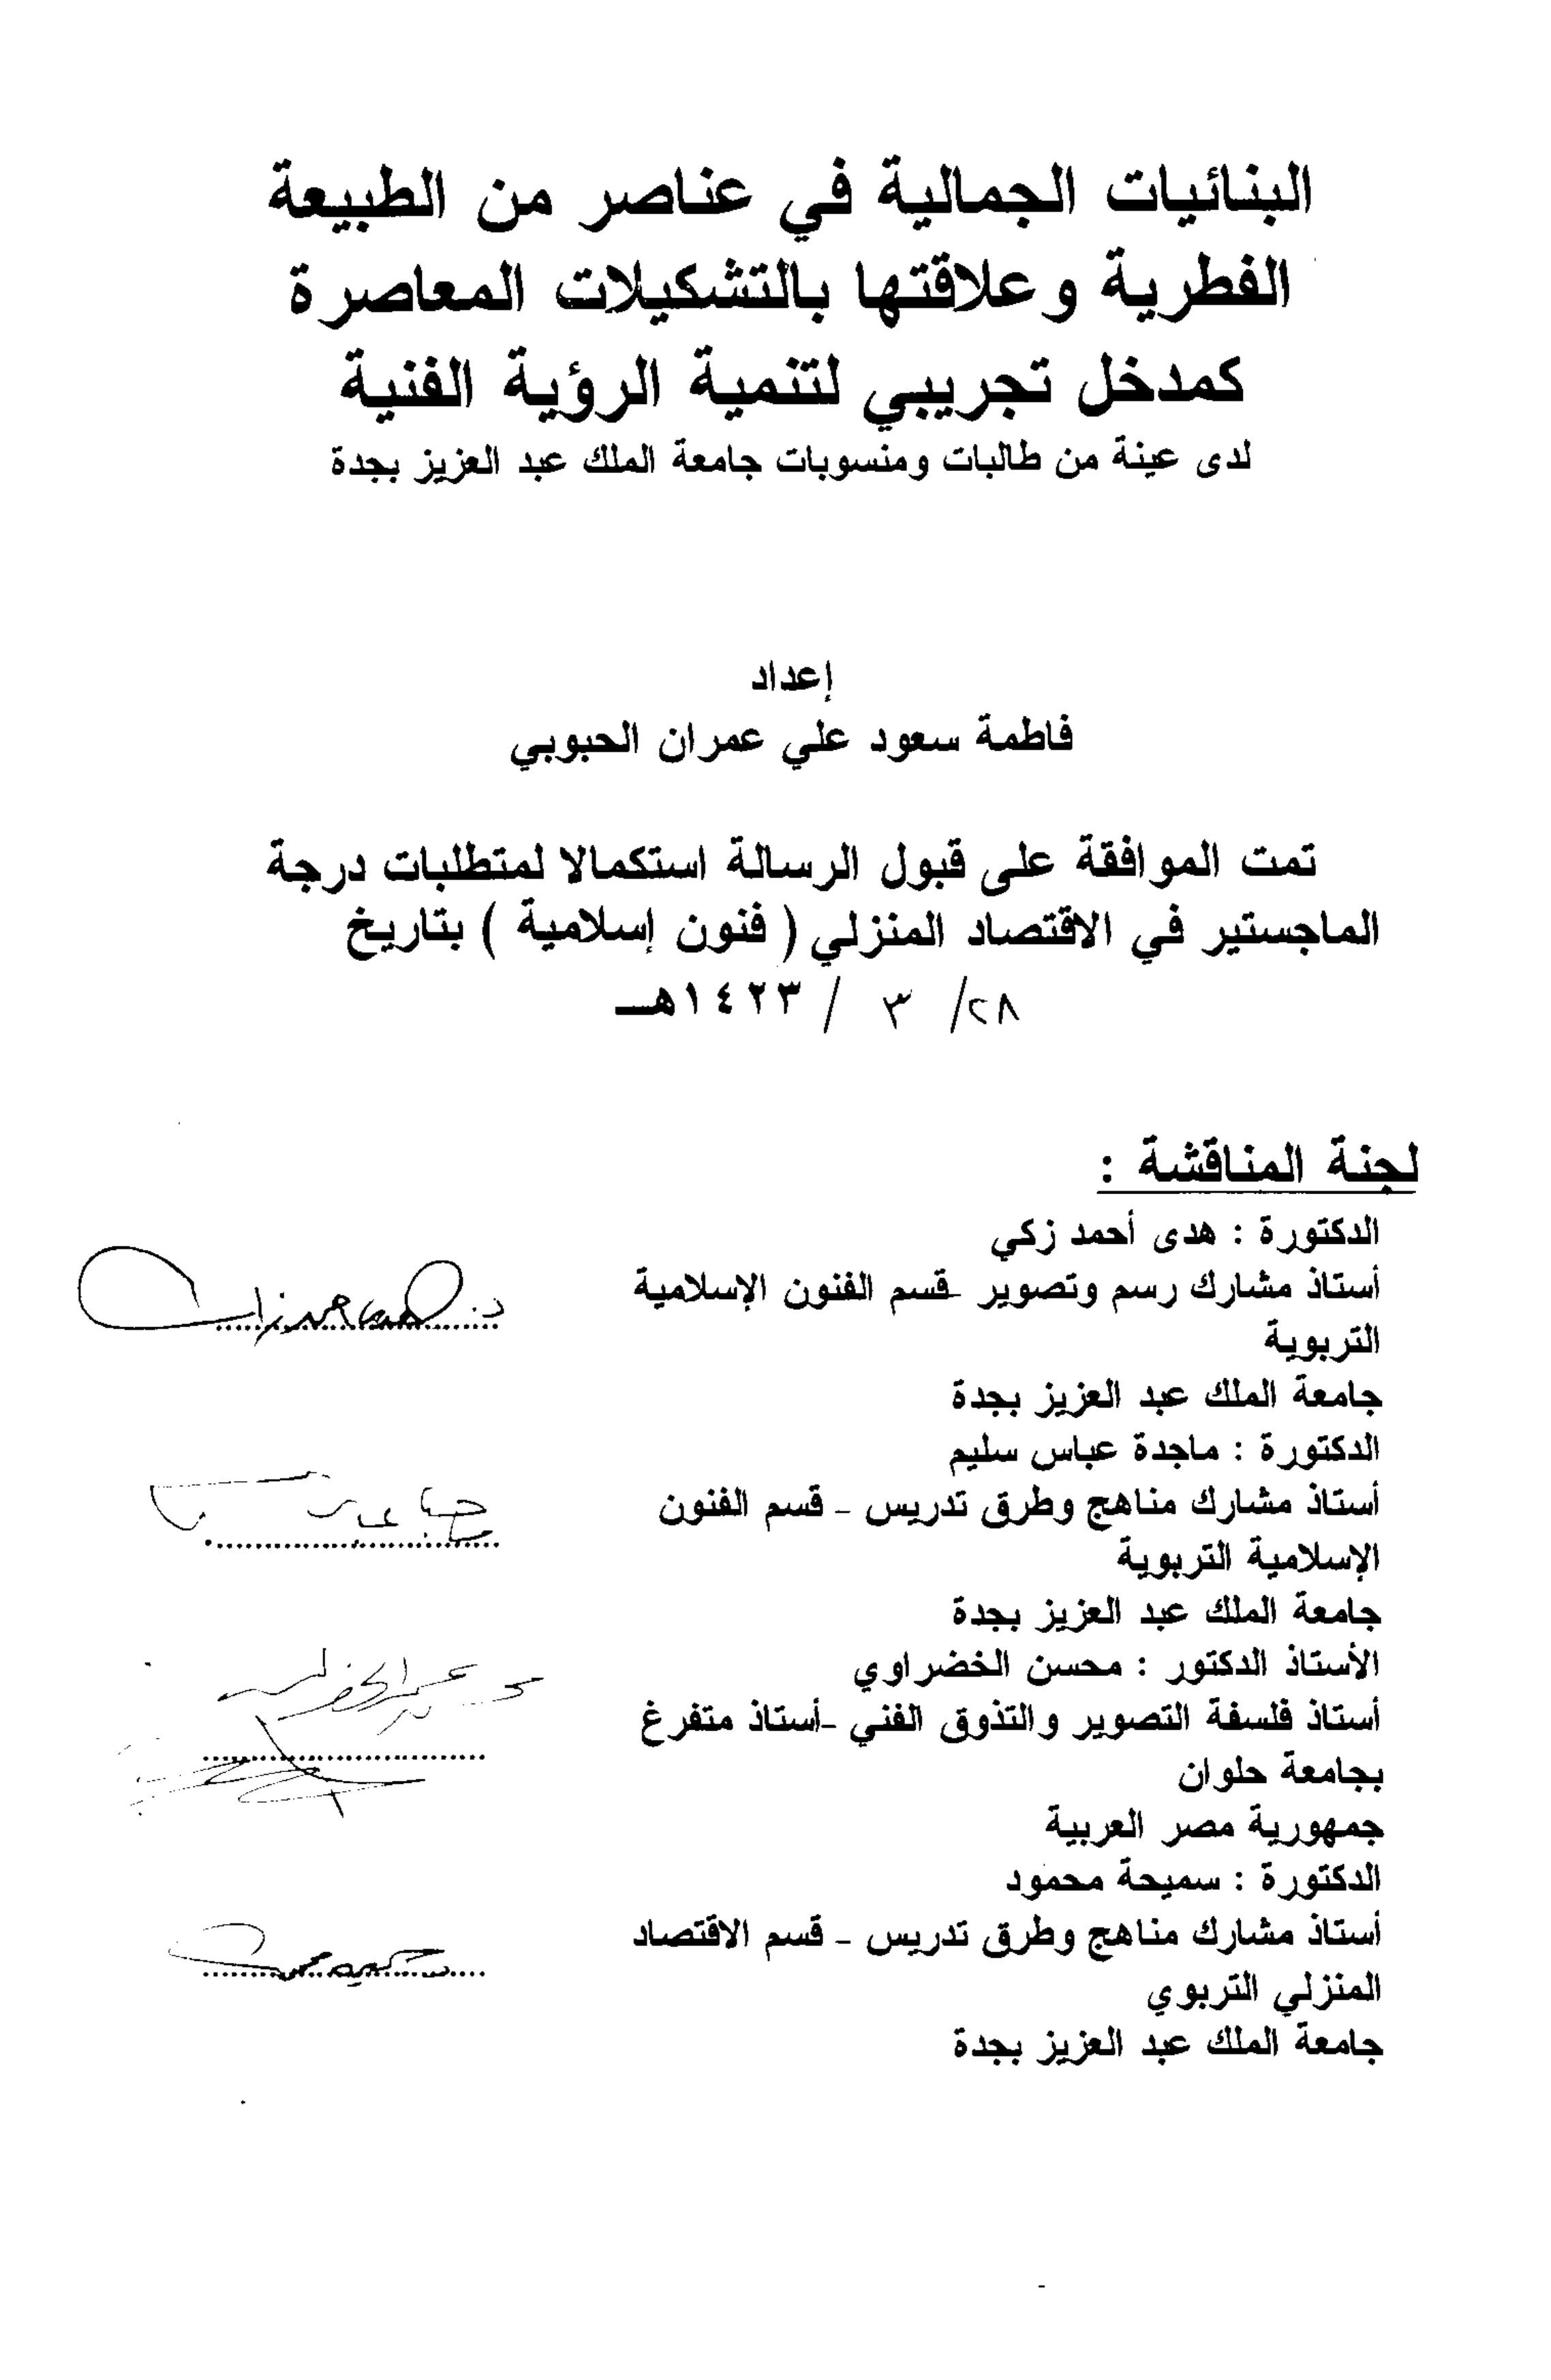 البنائيات الجمالية في عناصر من الطبيعة
الفطرية وعلاقتها بالتشكيلات المعاصرة
كمدخل تجريبي لتنمية الرؤية الفنية
لدى عينة من طالبات ومنسوبات جامعة الملك عبد العزيز بجدة
إعداد
فاطمة سعود علي عمران الحبوبي
تمت الموافقة على قبول الرسالة استكمالا لمتطلبات درجة
الماجستير في الاقتصاد المنزلي ( فنون إسلامية ) بتاريخ
٢٨/ ٣ / ١٤٢٣هـ
لجنة المناقشة :
الدكتورة : هدى أحمد زكي
أستاذ مشارك رسم وتصوير -قسم الفنون الإسلامية
التربوية
جامعة الملك عبد العزيز بجدة
الدكتورة : ماجدة عباس سليم
أستاذ مشارك مناهج وطرق تدريس - قسم الفنون
الإسلامية التربوية
جامعة الملك عبد العزيز بجدة
الأستاذ الدكتور : محسن الخضراوي
أستاذ فلسفة التصوير والتذوق الفني -أستاذ متفرغ
بجامعة حلوان
جمهورية مصر العربية
الدكتورة : سميحة محمود
أستاذ مشارك مناهج وطرق تدريس - قسم الاقتصاد
المنزلي التربوي
جامعة الملك عبد العزيز بجدة